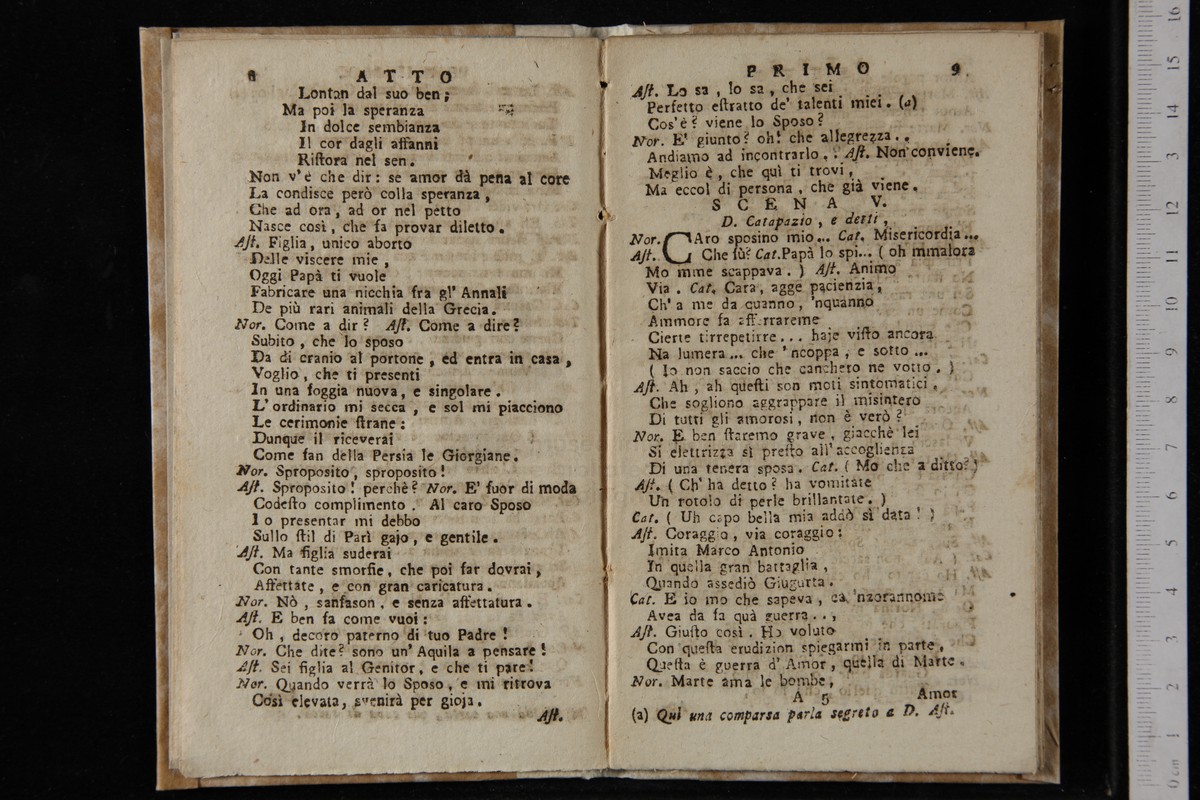 8 ATTO
Lontan dal suo ben;
Ma poi la speranza
In dolce sembianza
Il cor dagli affanni
Riſtora nel sen.
Non v'è che dir: se amor dà pena al core
La condisce però colla speranza,
Che ad ora, ad or nel petto
Nasce così, che fa provar diletto.
Aſt. Figlia, unico aborto
Delle viscere mie,
Oggi Papà ti vuole
Fabricare una nicchia fra gl' Annali
De più rari animali della Grecia.
Nor. Come a dir? Aſt. Come a dire?
Subito, che lo sposo
Da di cranio al portone, ed entra in casa,
Voglio, che ti presenti
In una foggia nuova, e singolare.
L' ordinario mi secca, e sol mi piacciono
Le cerimonie ſtrane:
Dunque il riceverai
Come fan della Persia le Giorgiane.
Nor. Sproposito, sproposito!
Aſt. Sproposito! perchè? Nor. E' fuor di moda
Codeſto complimento. Al caro Sposo
Io presentar mi debbo
Sullo ſtil di Parì gajo, e gentile.
Aſt. Ma figlia suderai
Con tante smorfie, che poi far dovrai,
Affettate, e con gran caricatura.
Nor. Nò, sanfason, e senza affettatura.
Aſt. E ben fa come vuoi:
Oh, decoro paterno di tuo Padre!
Nor. Che dite? sono un' Aquila a pensare!
Aſt. Sei figlia al Genitor, e che ti pare!
Nor. Quando verrà lo Sposo, e mi ritrova
Così elevata, svenirà per gioja.
Aſt.
PRIMO 9.
Aſt. Lo sa, lo sa, che sei
Perfetto eſtratto de' talenti miei. (a)
Cos'è? viene lo Sposo?
Nor. E' giunto? oh! che allegrezza..
Andiamo ad incontrarlo.. Aſt. Non conviene.
Meglio è, che quì ti trovi,
Ma eccol di persona, che già viene.
SCENA V.
D. Catapazio, e detti,
Nor. CAro sposino mio... Cat. Misericordia...
Aſt. Che fù? Cat. Papà lo spi... (oh mmalora
Mo mme scappava.) Aſt. Animo
Via. Cat. Cara, agge pacienzia,
Ch' a me da cuanno, 'nquanno
Ammore fa afferrareme
Cierte tirrepetirre... haje viſto ancora
Na lumera... che 'ncoppa, e sotto...
(Io non saccio che canchero ne votto.)
Aſt. Ah, ah queſti son moti sintomatici,
Che sogliono aggrappare il misintero
Di tutti gli amorosi, non è verò?
Nor. E ben ſtaremo grave, giacchè lei
Si elettrizza sì preſto all' accoglienza
Di una tenera sposa. Cat. (Mo che a ditto?)
Aſt. (Ch' ha detto? ha vomitate
Un rotolo di perle brillantate.)
Cat. (Uh capo bella mia addò sì data!)
Aſt. Coraggio, via coraggio:
Imita Marco Antonio
In quella gran battaglia,
Quando assediò Giugurta.
Cat. E io mo che sapeva, ca 'nzorannome
Avea da fa quà guerra..,
Aſt. Giuſto così. Ho voluto
Con queſta erudizion spiegarmi in parte,
Queſta è guerra d' Amor, quella di Marte.
Nor. Marte ama le bombe,
A 5 Amor
(a) Quì una comparsa parla segreto a D. Aſt.